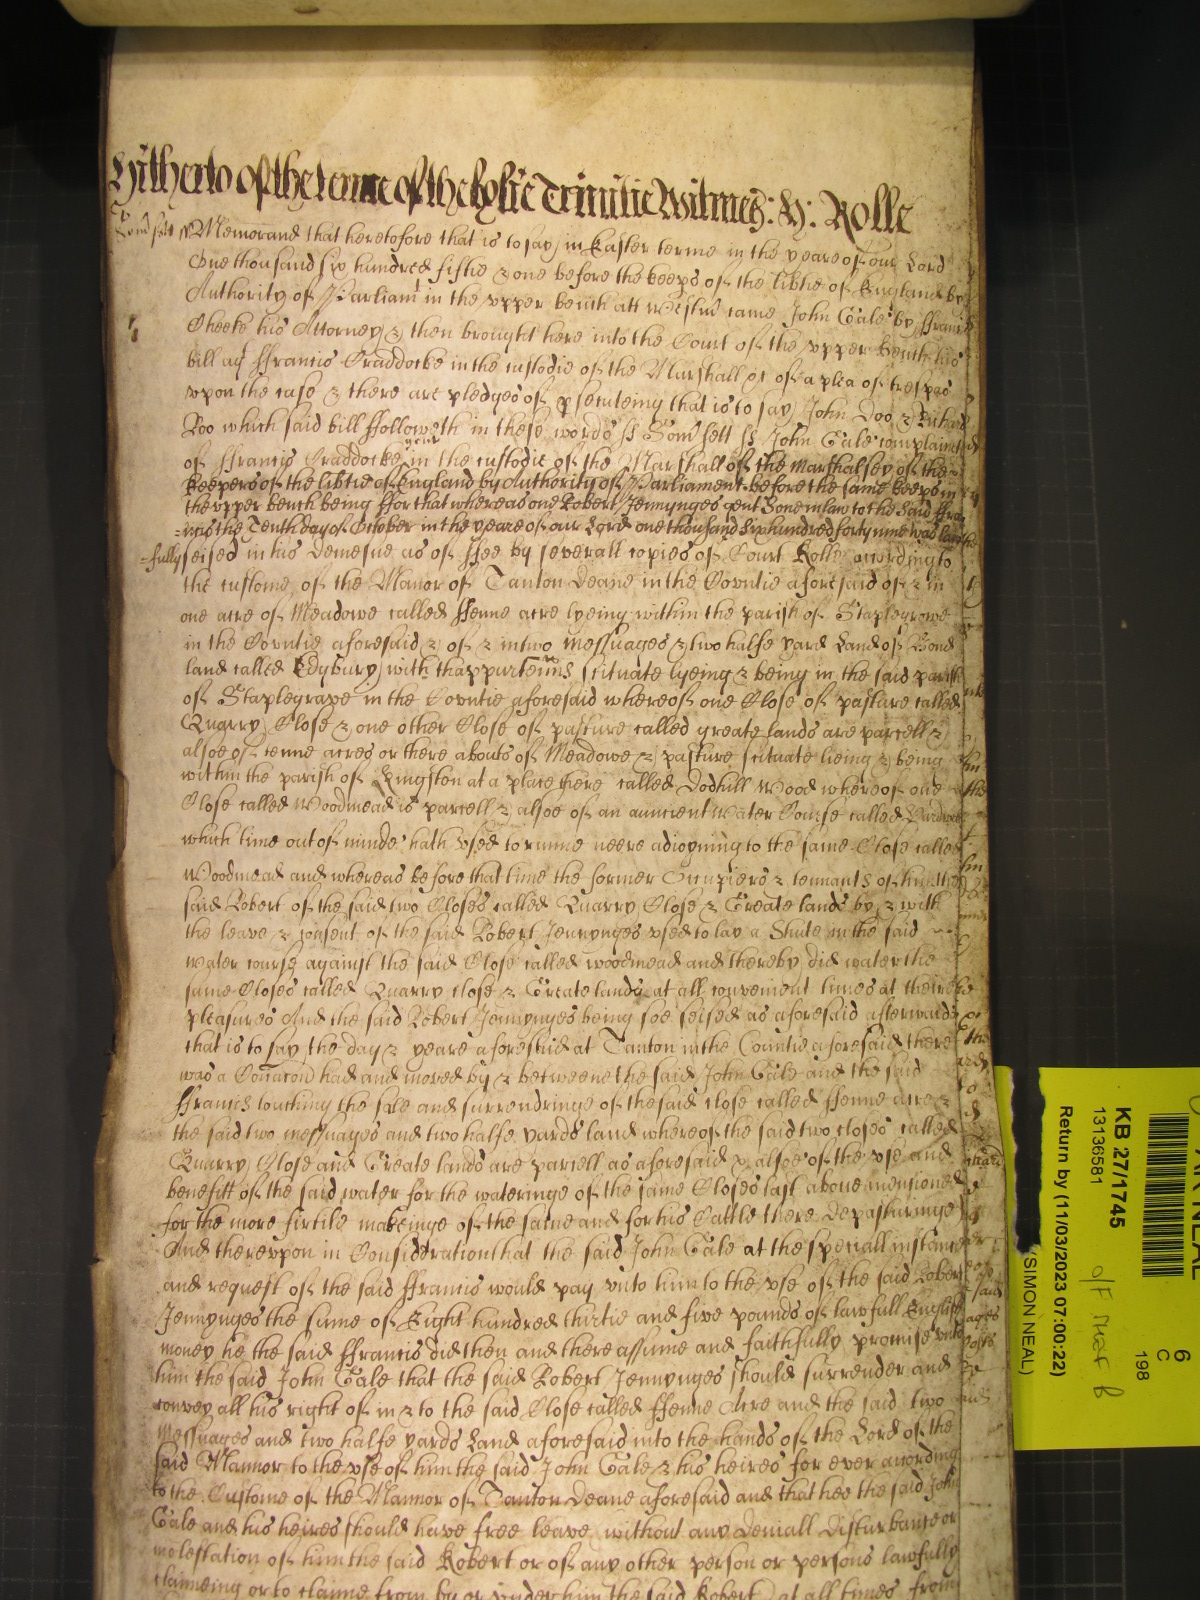 Hitherto of the terme of the holie Trinitie Witnes: H: Rolle
Memorand that heretofore that is to say in Easter terme in the yeare of our Lord
One thousand six hundred fiftie & one before the keeps of the libtie of England by
Authority of Parliamt in the vpper bench att Westm came John Gale by ffrancis
Cheeke his Attorney & then brought here into the Court of the vpper bench his
bill agt ffrancis Craddocke in the custodie of the Marshall &c of a plea of trespas
vpon the case & there are pledges of psecuteing that is to say John Doo & Richard
Roo which said bill ffolloweth in these words ss Somsett ss John Gale complaineth
of ffrancis Craddocke gent in the custodie of the Marshall of the Marshalsey of the
keepers of the libtie of England by Authority of Parliament before the same keeps in
the vpper bench being ffor that whereas one Robert Jennynges gent Sonn in law to the said ffran
=cis the Tenth day of October in the yeare of our Lord one thousand six hundred forty nine was law
=fully seised in his Demesne as of ffee by severall copies of Court Rolle according to
the custome of the Manor of Tanton Deane in the Countie aforesaid of & in
one acre of Meadowe called ffenne acre lyeing within the parish of Staplegrove
in the Countie aforesaid & of & in two messuages & two halfe yard Land of Bond
land called Edgbury with thappurtenncs scituate lyeing & being in the said parish
of Staplegrave in the Countie aforesaid whereof one Close of pasture called
Quarry Close & one other Close of pasture called greate lands are parcell &
alsoe of tenne acres or there abouts of Meadowe & pasture scituate lieing & being
within the parish of Kingston at a place there called Dodhill Wood whereof one
Close called Woodmead is parcell & alsoe of an auncient Water Course called
which time out of minde hath vsed to runne neere adioyning to the same Close called
Woodmead and whereas before that time the former Occupiers & tennants of him the
said Robert of the said two Closes called Quarry Close & Greate lands by & with
the leave & consent of the said Robert Jennynges vsed to lay a Shute in the said
Water course against the said Close called woodmead and thereby did water the
same Closes called Quarry close & Greate lands at all convenient times at their
pleasures And the said Robert Jennynges being soe seised as aforesaid afterwards
that is to say the day & yeare aforesaid at Tanton in the Countie aforesaid there
was a Conacon had and moved by & betweene the said John Gale and the said
ffrancis touching the sale and surrendringe of the said close called ffenne acre &
the said two messuages and two halfe yards land whereof the said two closes called
Quarry Close and Greate lands are parcell as aforesaid & alsoe of the vse and
benefitt of the said water for the wateringe of the same Closes last aboue mentioned
for the more firtile makeinge of the same and for his Cattle there Depasturinge
And therevpon in Consideration that the said John Gale at the speciall instance
and request of the said ffrancis would pay vnto him to the vse of the said Robert
Jennynges the sume of Eight hundred thirtie and five pounds of lawfull English
money he the said ffrancis did then and there assume and faithfully promise vnto
him the said John Gale that the said Robert Jennynges should surrender and
convey all his right of in & to the said Close called ffenne Acre and the said two
messuages and two halfe yards Land aforesaid into the hands of the Lord of the
said Mannor to the vse of him the said John Gale & his heires for ever according
to the Custome of the Mannor of Tanton Deane aforesaid and that hee the said John
Gale and his heires should have free leave without any Deniall Disturbance or
molestation of him the said Robert or of any other person or persons lawfully
claimeing or to claime from by or vnder him the said Robert at all times from
KB 27/1745
13136581
Return by (11/03/2023 07:00:22)
(SIMON NEAL)
198
C
6